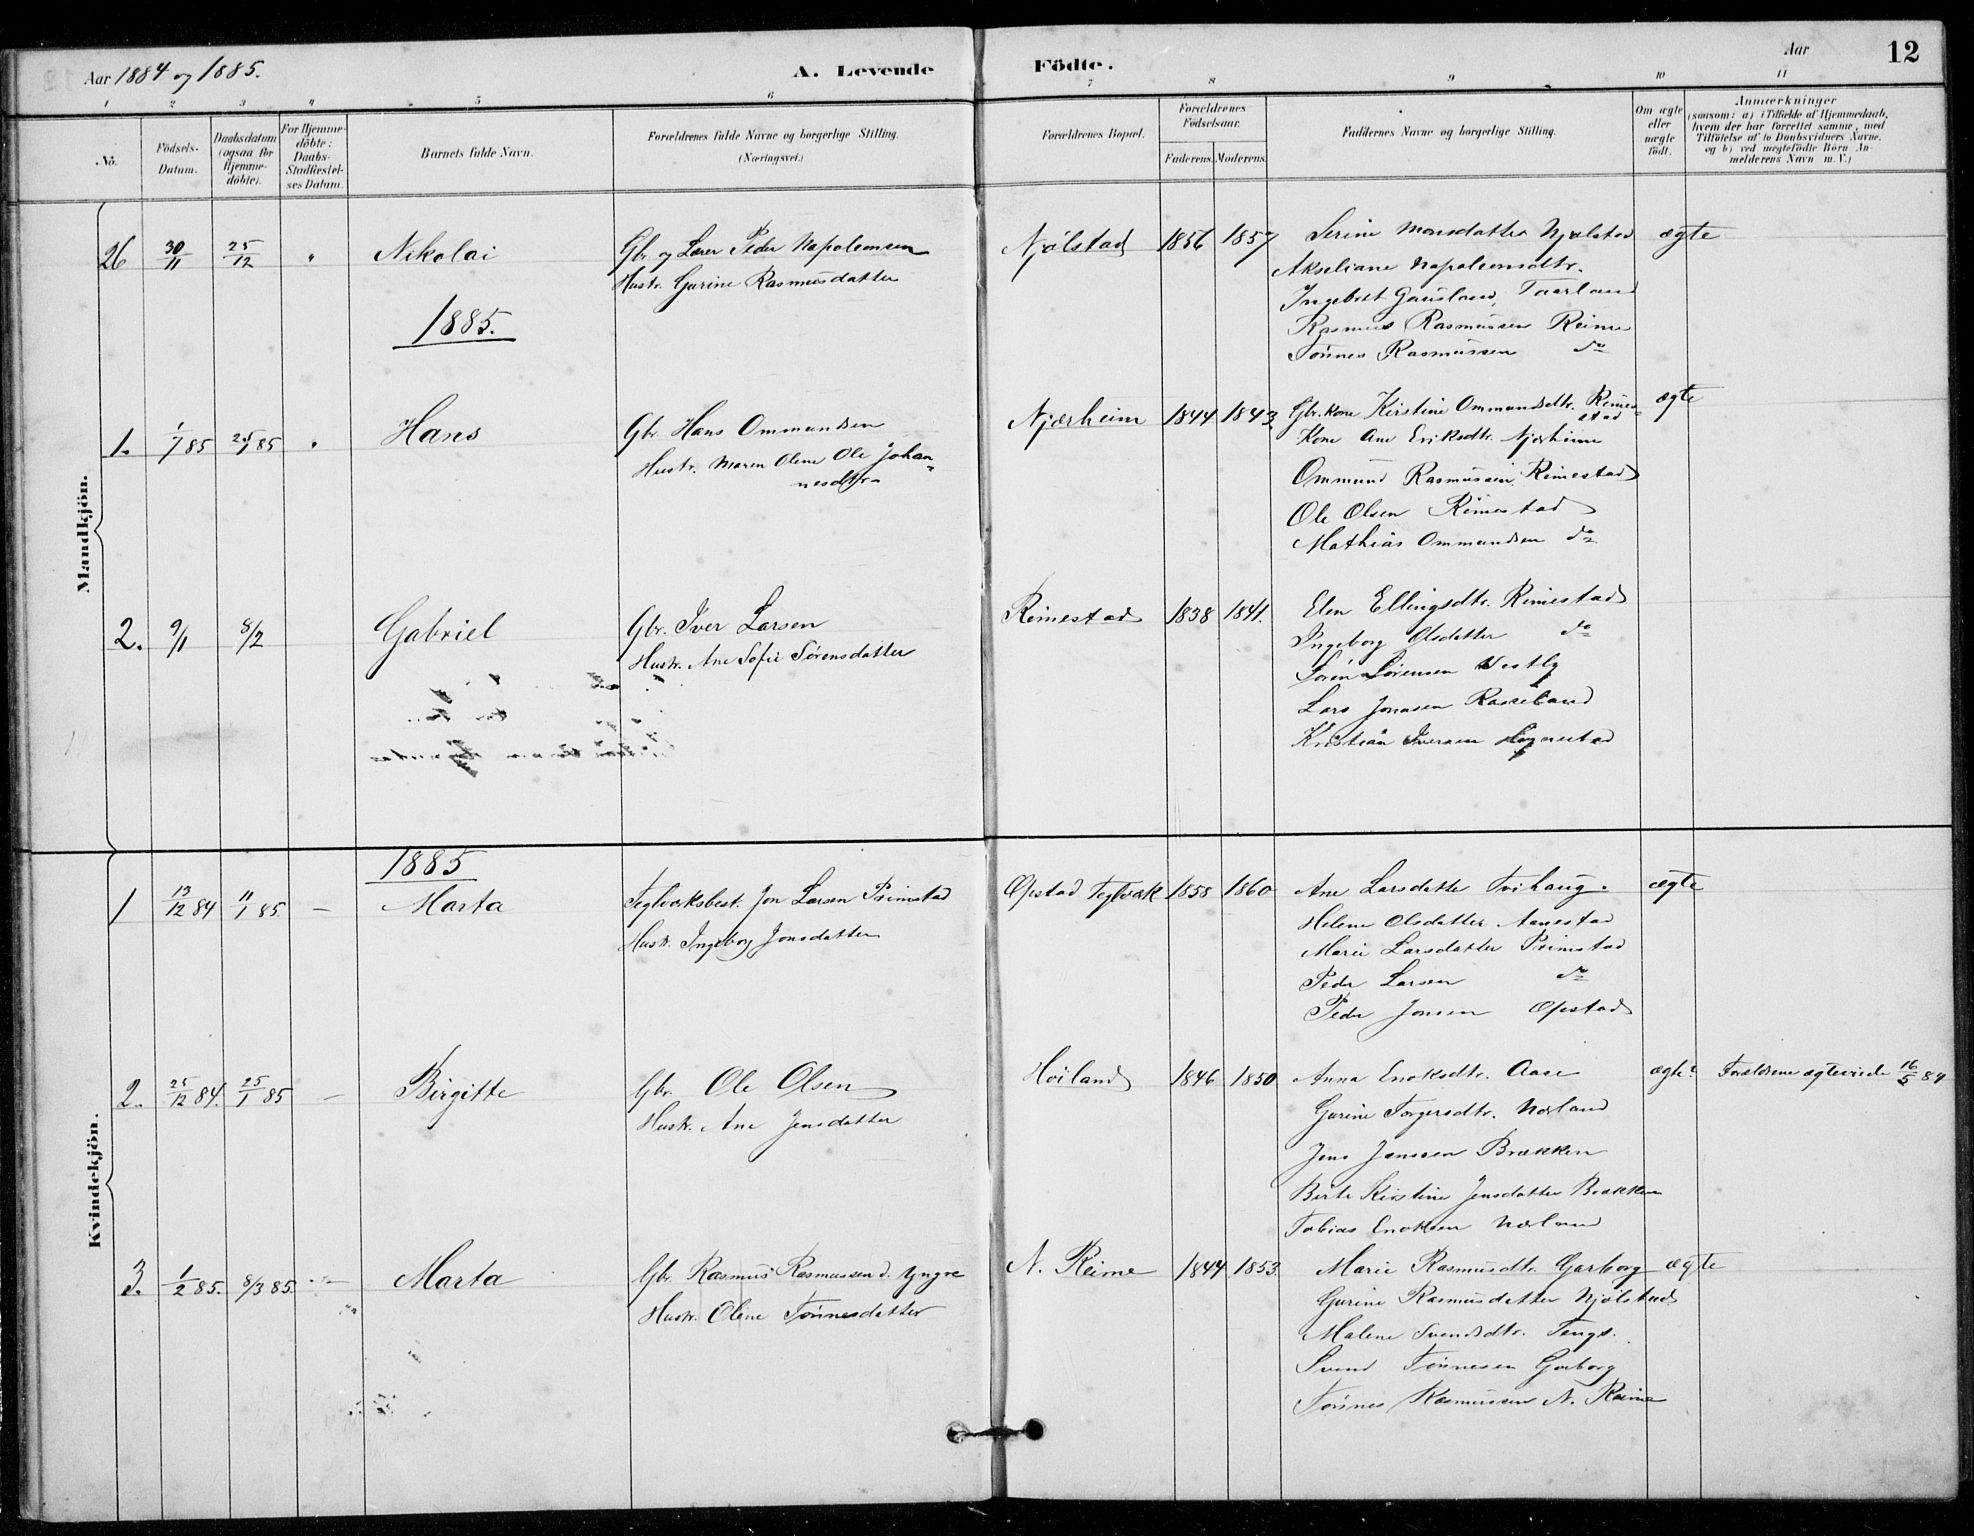 Aar 1884 og 1885.
A. Levende Födte.
Aar
12
1 2 3 4 5 6 7 8 9 10 11
No.
Födsels-Datum.
Daabsdatum (ogsaa for Hjemme-döbte).
For Hjemme-döbte: Daabs-Stadfæstel-ses Datum.
Barnets fulde Navn.
Forældrenes fulde Navne og borgerlige Stilling. (Næringsvei.)
Forældrenes Bopæl.
Forældrenes Födselsaar.
Faderens. Moderens.
Faddernes Navne og borgerlige Stilling.
Om ægte eller uægte födt.
Anmærkninger (saasom: a) i Tilfælde af Hjemmedaab, hvem der har forrettet samme, med Tilföielse af to Daabsvidners Navne. og b) ved uægtefödte Börn An-melderens Navn m. V.)
Mandkjön.
26 30/11 25/12 " Nikolai
Gbr. og Lærer Peder Napoleonsen
Hustr. Gurine Rasmusdatter
Njølstad 1856 1857
Serine Monsdatter Njølstad
Akseliane Napoleonsdtr.
Ingebret Gausland, Taarland
Rasmus Rasmussen Reime
Tønnes Rasmussen do
ægte
1885.
1. 1/1 85 25/1 85 " Hans
Gbr. Hans Ommundsen
Hustr. Maren Olene Ole Johan-
nesdtr.
Njærheim 1844 1843
Gbr. kone Kirstine Ommundsdtr. Rimes-
stad
Kone Ane Eriksdtr. Njærheim
Ommund Rasmussen Rimestad
Ole Olsen Rimestad
Mathias Ommundsen do
ægte
2. 9/1 8/2 Gabriel
Gbr. Iver Larsen
Hustr. Ane Sofie Sørensdatter
Reimestad 1838 1841.
Elen Ellingsdtr. Rimestad
Ingeborg Olsdatter do
Søren Sørensen Westly
Lars Jonasen
Kristian Iversen
Kvindekjön.
1885
1 13/12 84 11/1 85 — Marta
Teglværksbest. Jon Larsen Primstad
Hustr. Ingeborg Jonsdatter
Opstad Teglværk 1858 1860
Ane Larsdatter Tvihaug.
Helene Olsdatter Aanestad
Marie Larsdatter Primstad
Peder Larsen do
Peder Jonsen Opstad
ægte
2. 25/12 84. 25/1 85 — Birgitte
Gbr. Ole Olsen
Hustr. Ane Jensdatter
Høiland 1846 1850
Anna Enoksdtr. Aase
Gurine Torgersdtr. Nærland
Jens Jensen Brækken
Berte Kirstine Jensdatter Brækken
Tobias Enoksen Nærland
ægte
Forældrene ægteviede 16/5 84
3. 1/2 85. 8/3 85. Marta
Gbr. Rasmus Rasmussen d. yngre
Hustr. Olene Tønnesdatter
N. Reime 1844 1853
Marie Rasmusdtr. Garborg
Gurine Rasmusdatter Njølstad
Malene Svendsdtr. Tengs.
Svend Tønnesen Garborg
Tønnes Rasmussen N. Reime
ægte